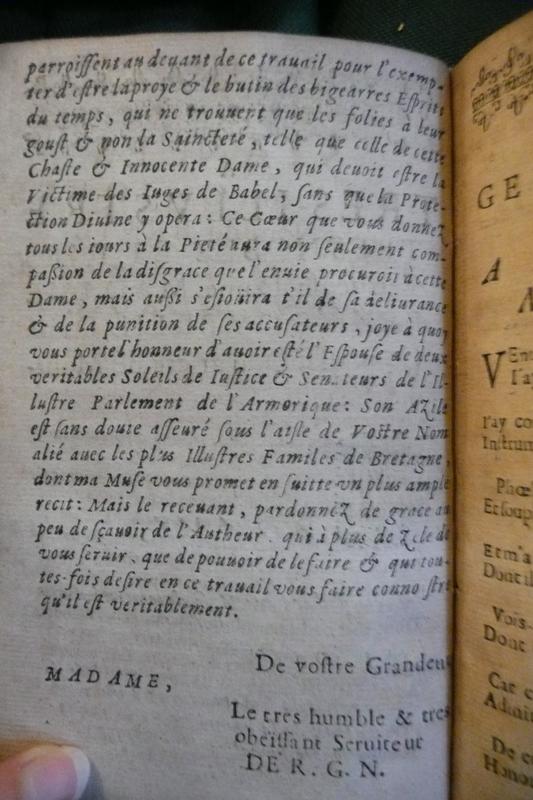 parroissent au deuant de ce trauail pour l'exemp-
ter d'estre la proye & le butin des bigearres Esprits
du temps, qui ne trouuent que les folies à leur
goust & non la Saincteté, telle que celle de cette
Chaste & Innocente Dame, qui deuoit estre la
Victime des Iuges de Babel, sans que la Prote-
ction Diuine y opera: Ce Cœur que vous donnez
tous les iours à la Pieté aura non seulement com-
passion de la disgrace que l'enuie procuroit à cette
Dame, mais aussi s'esioüira t'il de sa deliurance
& de la punition de ses accusateurs, joye à quoy
vous porte l'honneur d'auoir esté l'Espouse de deux
veritables Soleils de Iustice & Senateurs de l'Il-
lustre Parlement de l'Armorique: Son Azile
est sans doute asseuré sous l'aisle de Vostre Nom
alié auec les plus Illustres Familes de Bretagne,
dont ma Muse vous promet en suitte vn plus ample
recit: Mais le receuant, pardonnez de grace au
peu de sçauoir de l'Autheur. qui à plus de zele de
vous seruir, que de pouuoir de le faire & qui tou-
tes-fois desire en ce trauail vous faire connoistre
qu'il est veritablement.
MADAME,
De vostre Grandeur
Le tres humble & tres
obeïssant Seruiteur
DE R. G. N.
GE
A
V